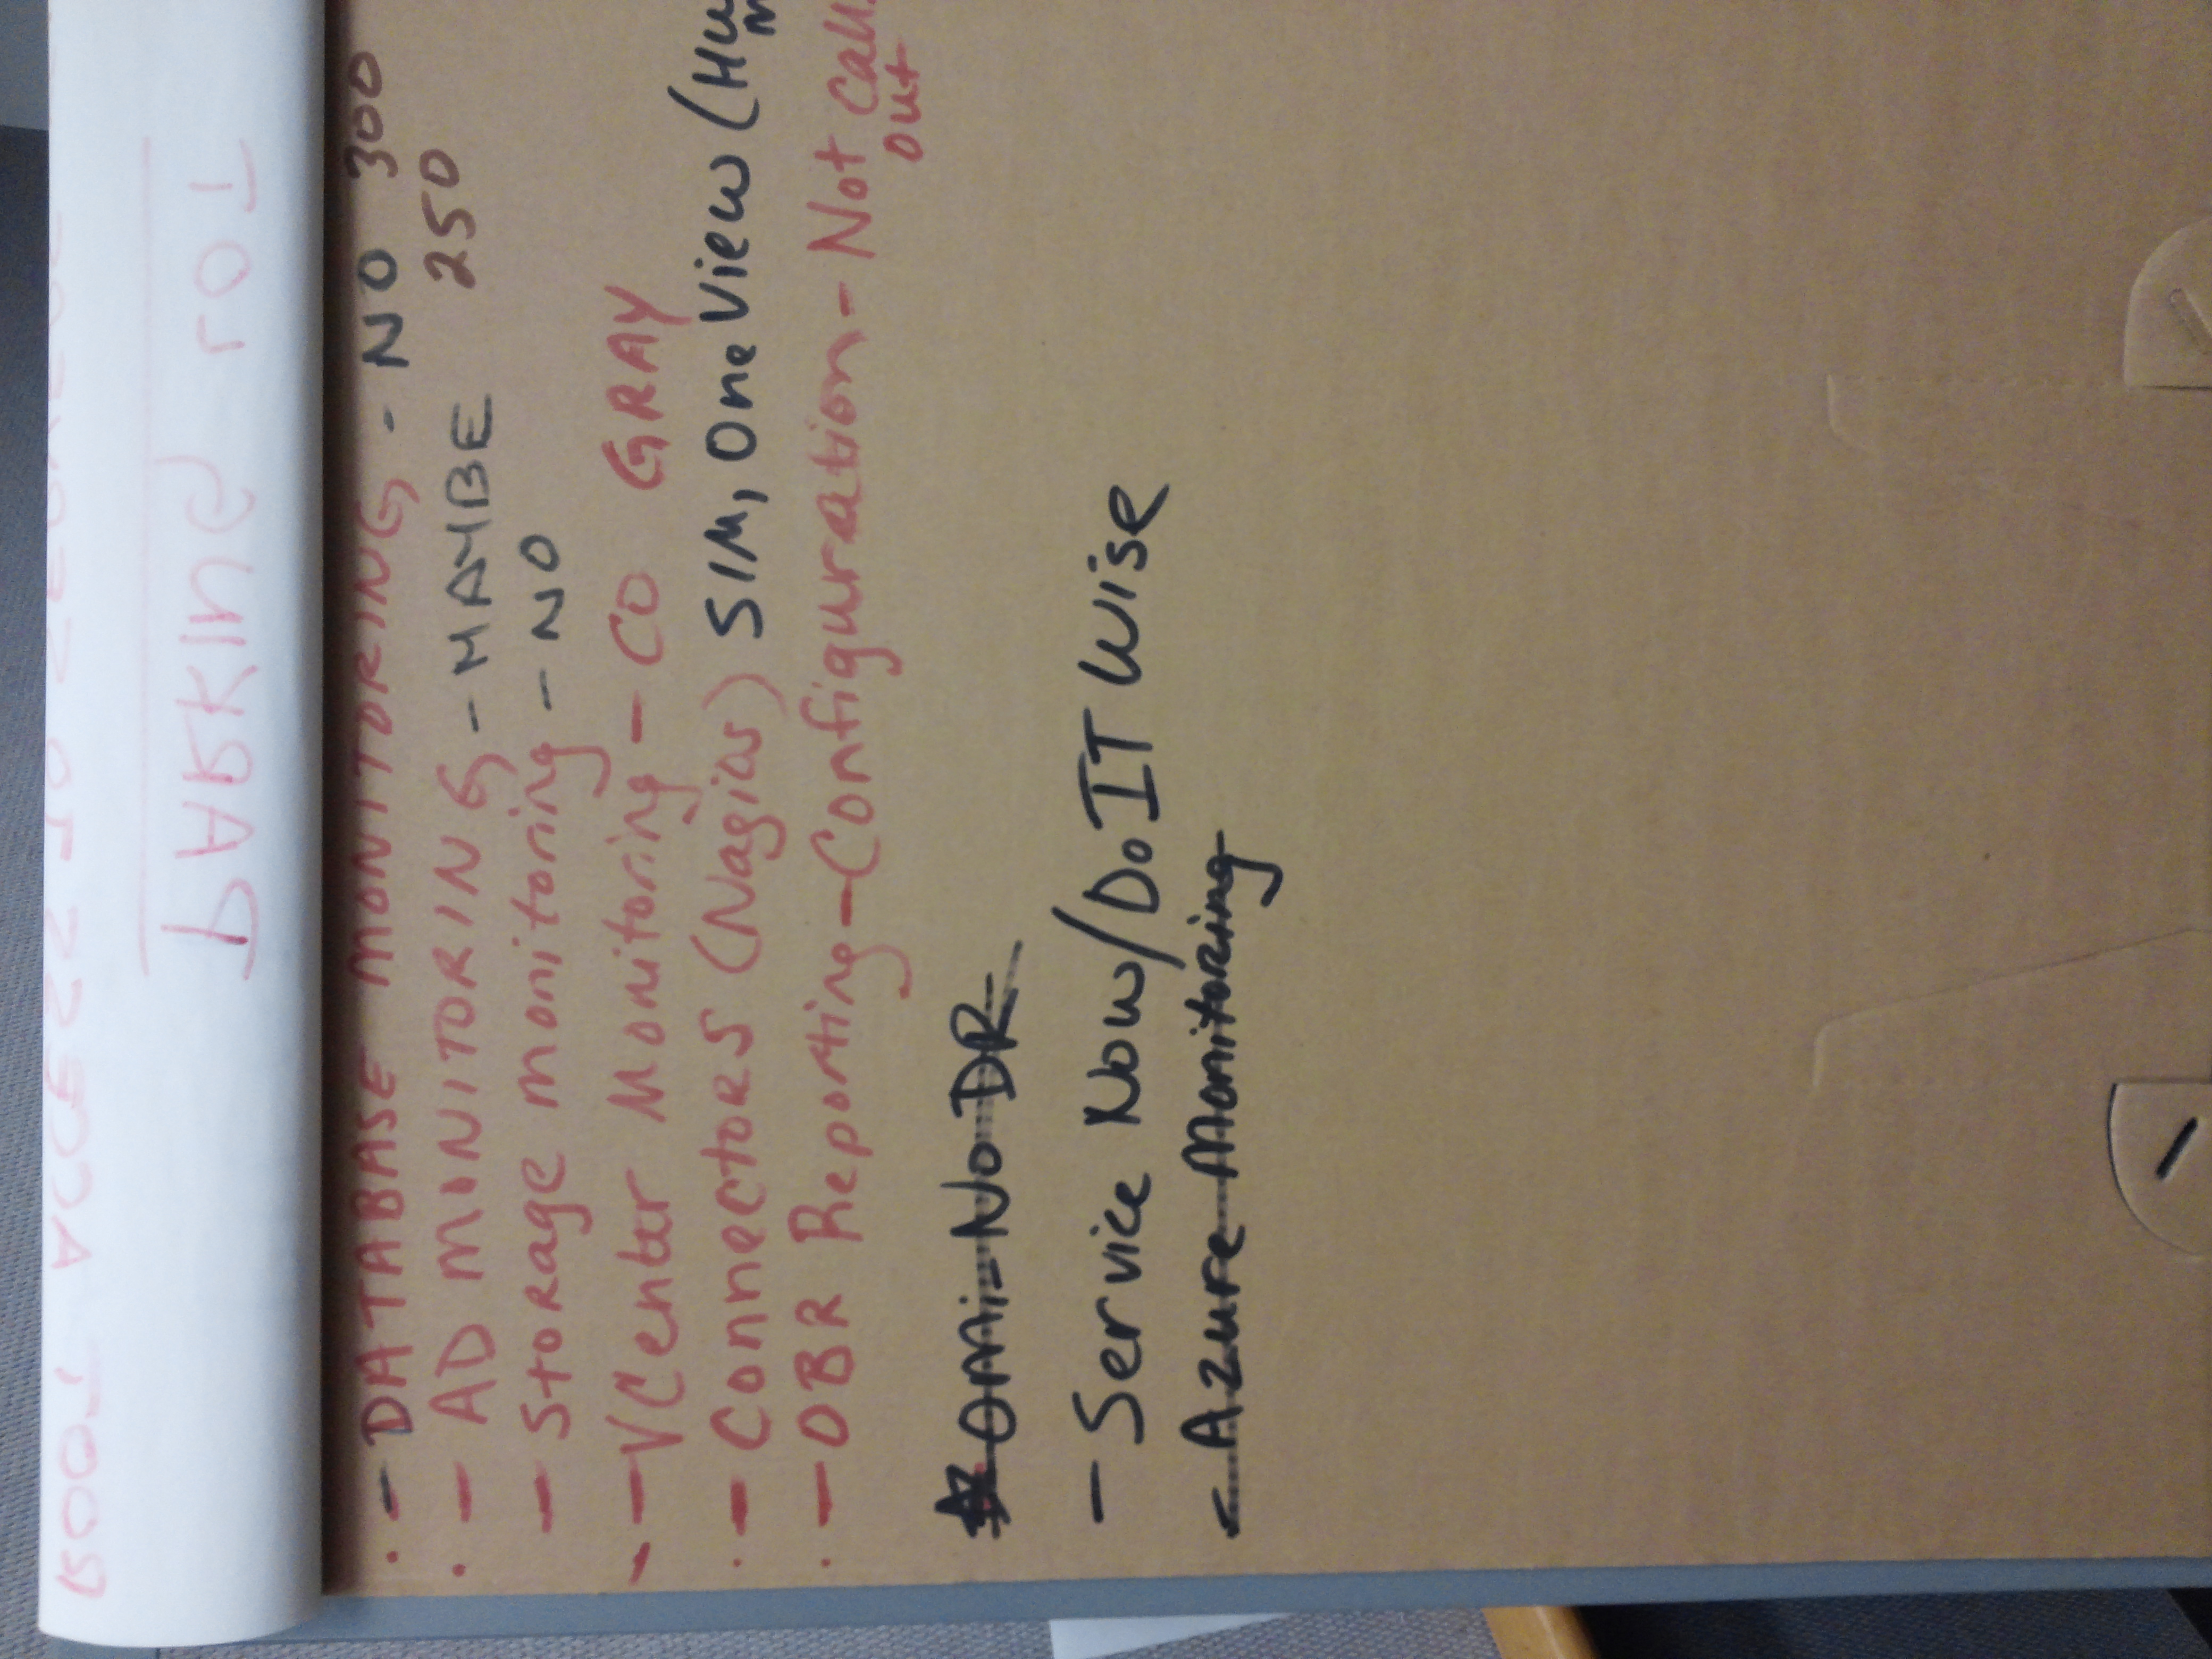 PARKING LOT
- DATABASE MONITORING - NO 300
- AD MONITORING - MAYBE 250
- Storage monitoring - NO
- VCenter Monitoring - CO GRAY
- Connectors (Nagios) SIM, OneView (Hu
- OBR Reporting - Configuration - Not Call
out
* OMi - No DR
- Service Now/DoIT Wise
- Azure Monitoring